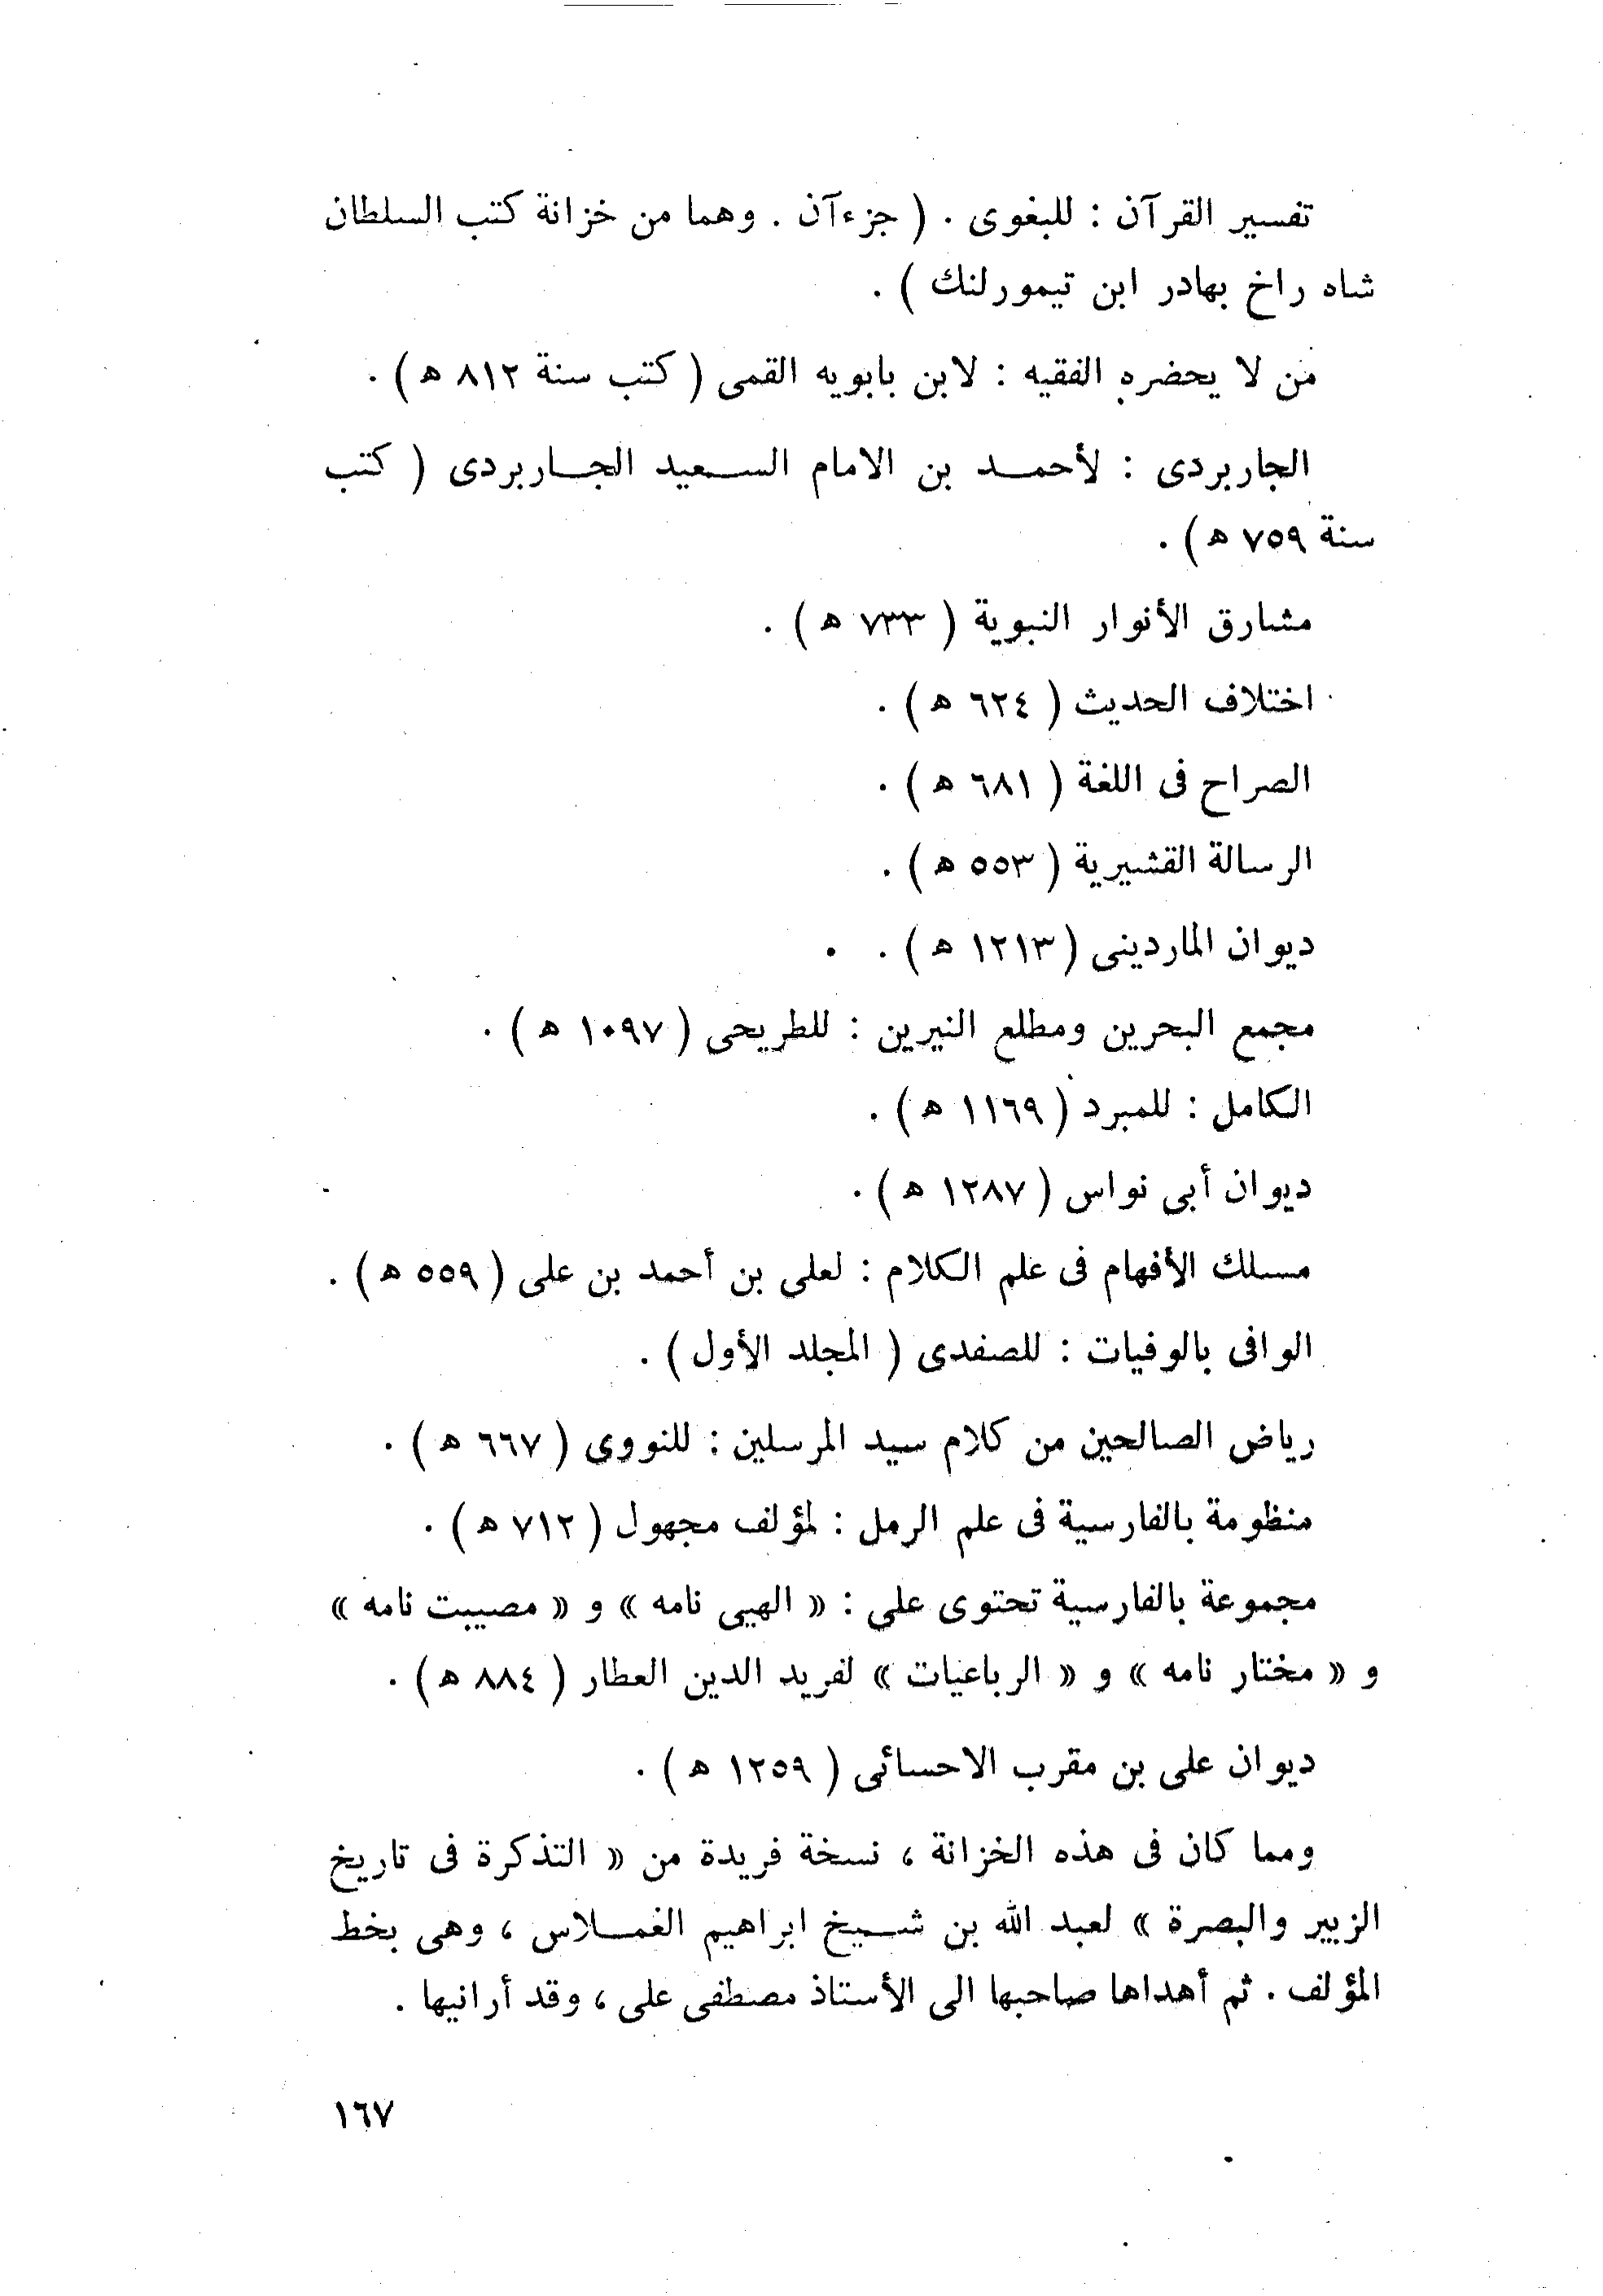 تفسير القرآن : للبغوى . ( جزءآن . وهما من خزانة كتب السلطان
شاه راخ بهادر ابن تيمورلنك ) .
من لا يحضره الفقيه : لابن بابويه القمى ( كتب سنة ٨١٢ هـ ) .
الجاربردى : لأحمد بن الامام السعيد الجاربردى ( كتب
سنة ٧٥٩ هـ ) .
مشارق الأنوار النبوية ( ٧٣٣ هـ ) .
اختلاف الحديث ( ٦٢٤ هـ ) .
الصراح فى اللغة ( ٦٨١ هـ ) .
الرسالة القشيرية ( ٥٥٣ هـ ) .
ديوان الماردينى ( ١٢١٣ هـ ) .
مجمع البحرين ومطلع النيرين : للطريحى ( ١٠٩٧ هـ ) .
الكامل : للمبرد ( ١١٦٩ هـ ) .
ديوان أبى نواس ( ١٢٨٧ هـ ) .
مسلك الأفهام فى علم الكلام : لعلى بن أحمد بن على ( ٥٥٩ هـ ) .
الوافى بالوفيات : للصفدى ( المجلد الأول ) .
رياض الصالحين من كلام سيد المرسلين : للنووى ( ٦٦٧ هـ ) .
منظومة بالفارسية فى علم الرمل : لمؤلف مجهول ( ٧١٢ هـ ) .
مجموعة بالفارسية تحتوى على : « الهيى نامه » و « مصيبت نامه »
و « مختار نامه » و « الرباعيات » لفريد الدين العطار ( ٨٨٤ هـ ) .
ديوان على بن مقرب الاحسائى ( ١٢٥٩ هـ ) .
ومما كان فى هذه الخزانة ، نسخة فريدة من « التذكرة فى تاريخ
الزبير والبصرة » لعبد الله بن شيخ ابراهيم الغملاس ، وهى بخط
المؤلف . ثم أهداها صاحبها الى الأستاذ مصطفى على ، وقد أرانيها .
١٦٧